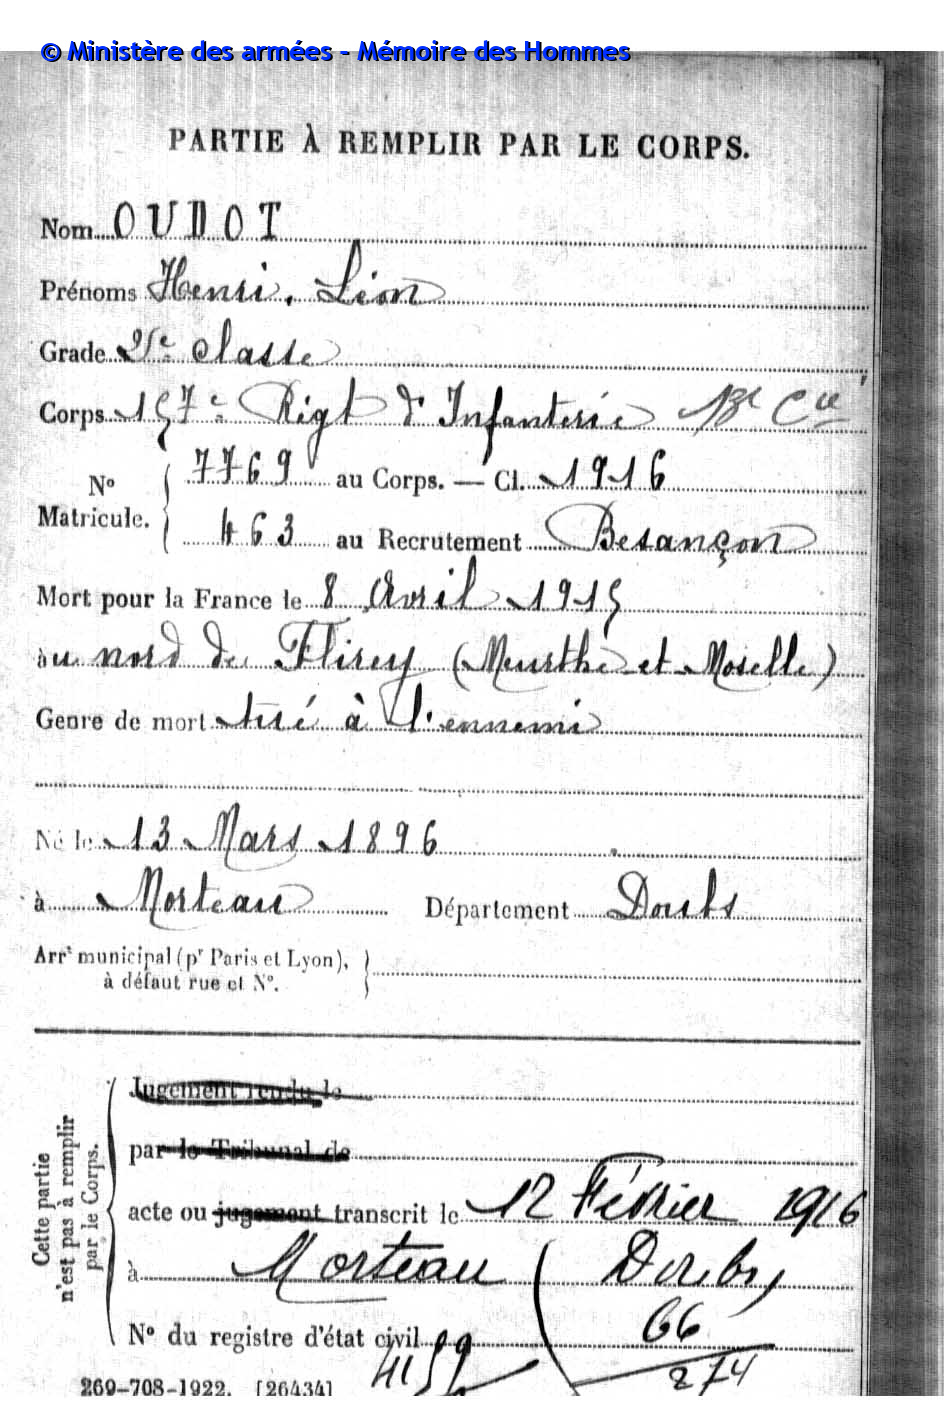 © Ministère des armées - Mémoire des Hommes
PARTIE À REMPLIR PAR LE CORPS.
Nom OUDOT
Prénoms Henri, Léon
Grade 2e classe
Corps 157e Régt d'Infanterie 13e Cie
No Matricule. 7769 au Corps. — Cl. 1916
463 au Recrutement Besançon
Mort pour la France le 8 Avril 1915
au nord de Flirey (Meurthe et Moselle)
Genre de mort tué à l'ennemi
Né le 13 Mars 1896
à Morteau Département Doubs
Arrt municipal (pr Paris et Lyon),
à défaut rue et No.
Cette partie
n'est pas à remplir
par le Corps.
Jugement rendu le
par le Tribunal de
acte ou jugement transcrit le 12 Février 1916
à Morteau (Doubs)
No du registre d'état civil 66
274
269-708-1922. [26434]